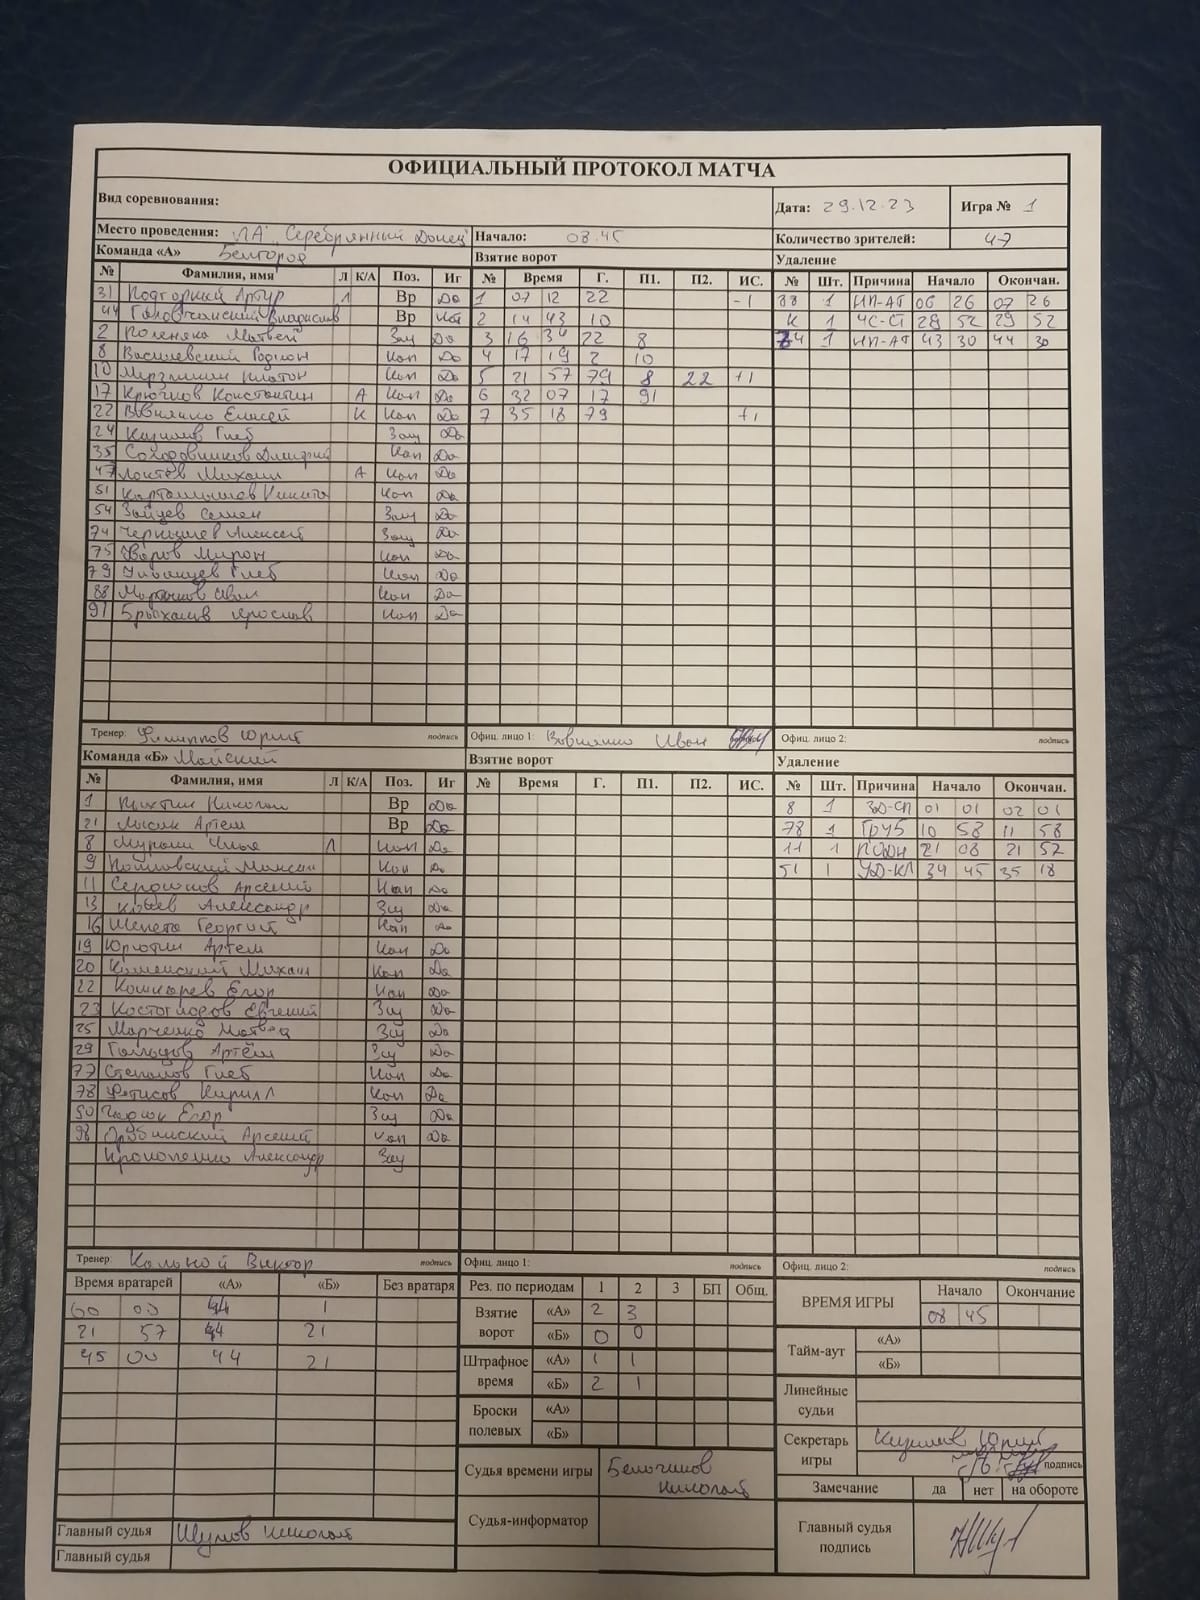 ОФИЦИАЛЬНЫЙ ПРОТОКОЛ МАТЧА
Вид соревнования: Дата: 29.12.23 Игра № 1
Место проведения: ЛА "Серебрянный Донец" Начало: 08.45 Количество зрителей: 47
Команда «А» Белгород Взятие ворот Удаление
№ Фамилия, имя Л К/А Поз. Иг № Время Г. П1. П2. ИС. № Шт. Причина Начало Окончан.
31 Подгорный Артур Л Вр Да 1 07 12 22 -1 88 1 ИП-АТ 06 26 07 26
44 Головчанский Владислав Вр 2 14 43 10 К 1 ЧС-СТ 28 52 29 52
2 Матвей Защ Да 3 16 34 22 8 74 1 ИП-АТ 43 30 44 30
8 Василевский Родион Нап Да 4 17 19 2 10
10 Мерзликин Платон Нап Да 5 21 57 79 8 22 +1
17 Крючков Константин А Нап Да 6 32 07 17 91
22 Вовченко Елисей К Нап Да 7 35 18 79 +1
24 Глеб Защ Да
35 Дмитрий Нап Да
47 Локтев Михаил А Нап Да
51 Карталышев Никита Нап Да
54 Зайцев Семен Защ Да
74 Чернышев Алексей Защ Да
75 Уваров Мирон Нап Да
79 Глеб Нап Да
88 Мартынов Иван Нап Да
91 Брыханов Ярослав Нап Да
Тренер: Филиппов Юрий подпись Офиц. лицо 1: Вовченко Иван Офиц. лицо 2: подпись
Команда «Б» Майский Взятие ворот Удаление
№ Фамилия, имя Л К/А Поз. Иг № Время Г. П1. П2. ИС. № Шт. Причина Начало Окончан.
1 Пыхтин Николай Вр Да 8 1 ЗД-СП 01 01 02 01
21 Лысак Артем Вр Да 78 1 ГРУБ 10 58 11 58
8 Илья Л Нап Да 11 1 ПОДН 21 08 21 57
9 Максим Нап Да 51 1 УД-КЛ 34 45 35 18
11 Сердюков Арсений Нап Да
13 Александр Защ Да
16 Шепета Георгий Нап Да
19 Юрютин Артем Нап Да
20 Каменский Михаил Нап Да
22 Кошкарев Егор Нап Да
23 Костогладов Евгений Защ Да
25 Марченко Матвей Защ Да
29 Гольцов Артём Защ Да
77 Степанов Глеб Нап Да
78 Фетисов Кирилл Нап Да
90 Егор Защ Да
98 Арсений Нап Да
Александр Защ
Тренер Кальной Виктор подпись Офиц. лицо 1: подпись Офиц. лицо 2: подпись
Время вратарей «А» «Б» Без вратаря Рез. по периодам 1 2 3 БП Общ. ВРЕМЯ ИГРЫ Начало Окончание
60 00 44 1 Взятие ворот «А» 2 3 08 45
21 57 44 21 «Б» 0 0 Тайм-аут «А»
45 00 44 21 Штрафное время «А» 1 1 «Б»
«Б» 2 1 Линейные судьи
Броски полевых «А»
«Б» Секретарь игры Юрий
подпись
Судья времени игры Белочинов Николай Замечание да нет на обороте
Судья-информатор Главный судья подпись
Главный судья Шумов Николай
Главный судья